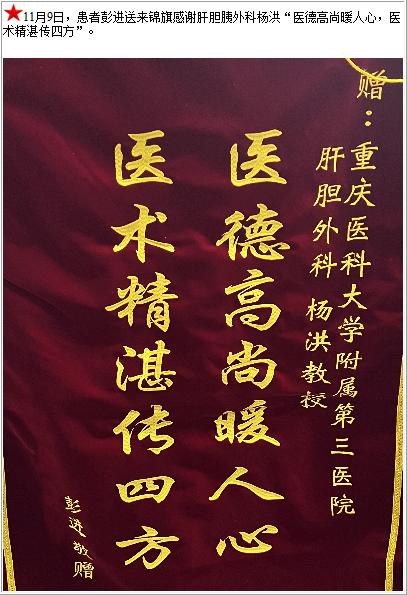 ★11月9日，患者彭进送来锦旗感谢肝胆胰外科杨洪“医德高尚暖人心，医
术精湛传四方”。
赠：重庆医科大学附属第三医院
肝胆外科 杨洪教授
医德高尚暖人心
医术精湛传四方
彭进敬赠